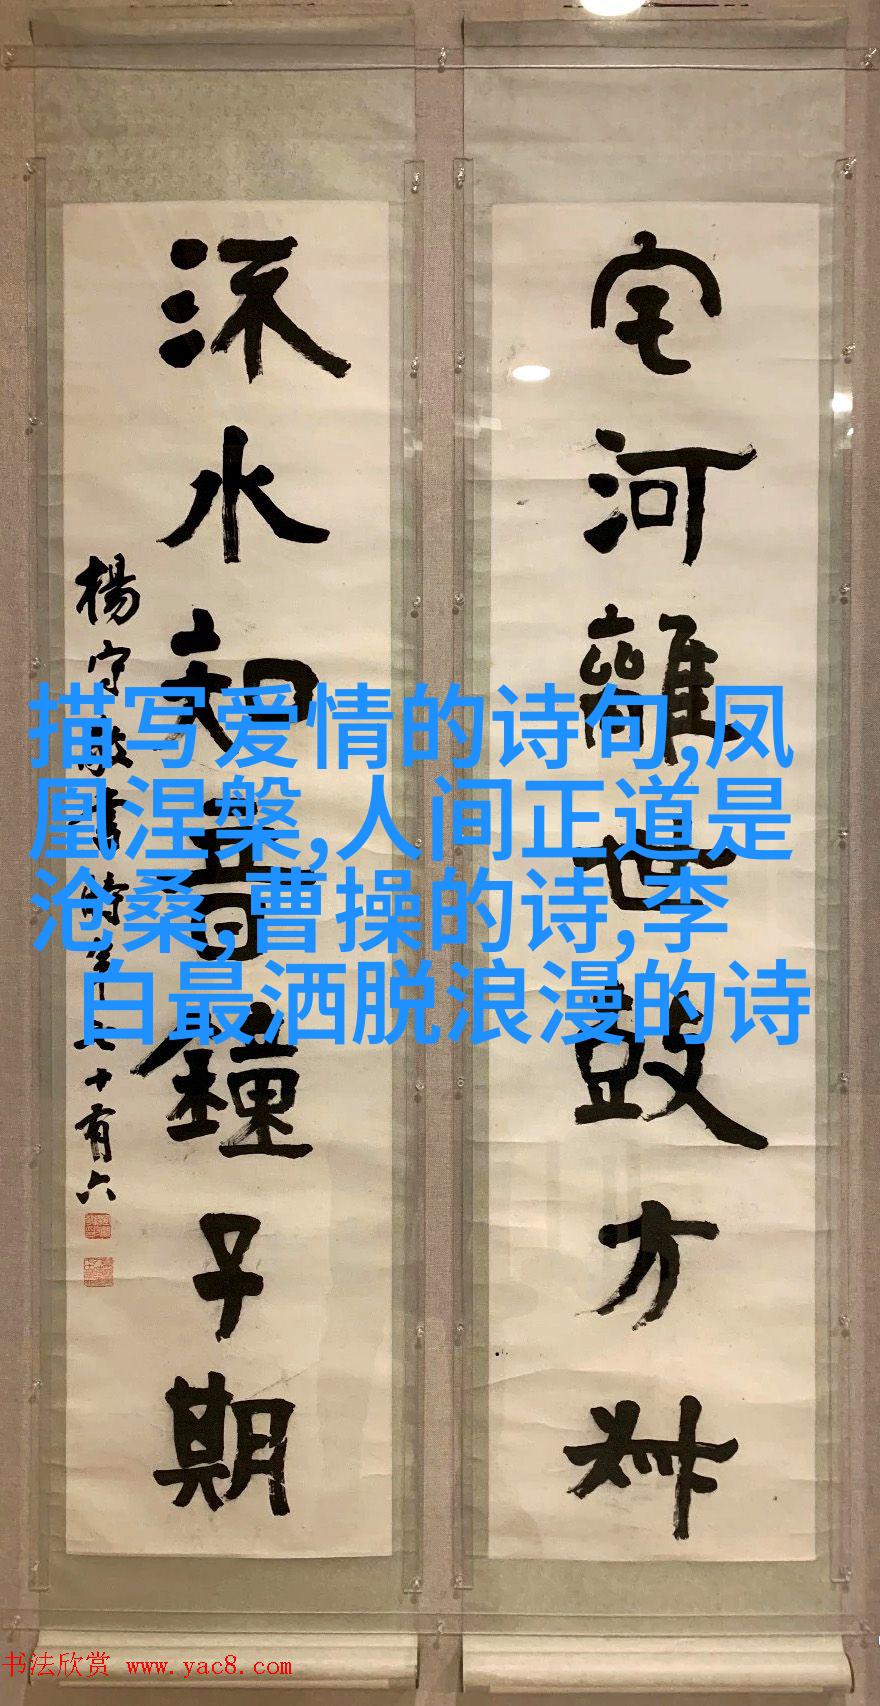 宅河離世鼓方叔
流水知音鐘子期
楊守敬書時年七十有六
描写爱情的诗句,凤
凰涅槃,人间正道是
沧桑,曹操的诗,李
白最洒脱浪漫的诗
书法欣赏 www.yac8.com